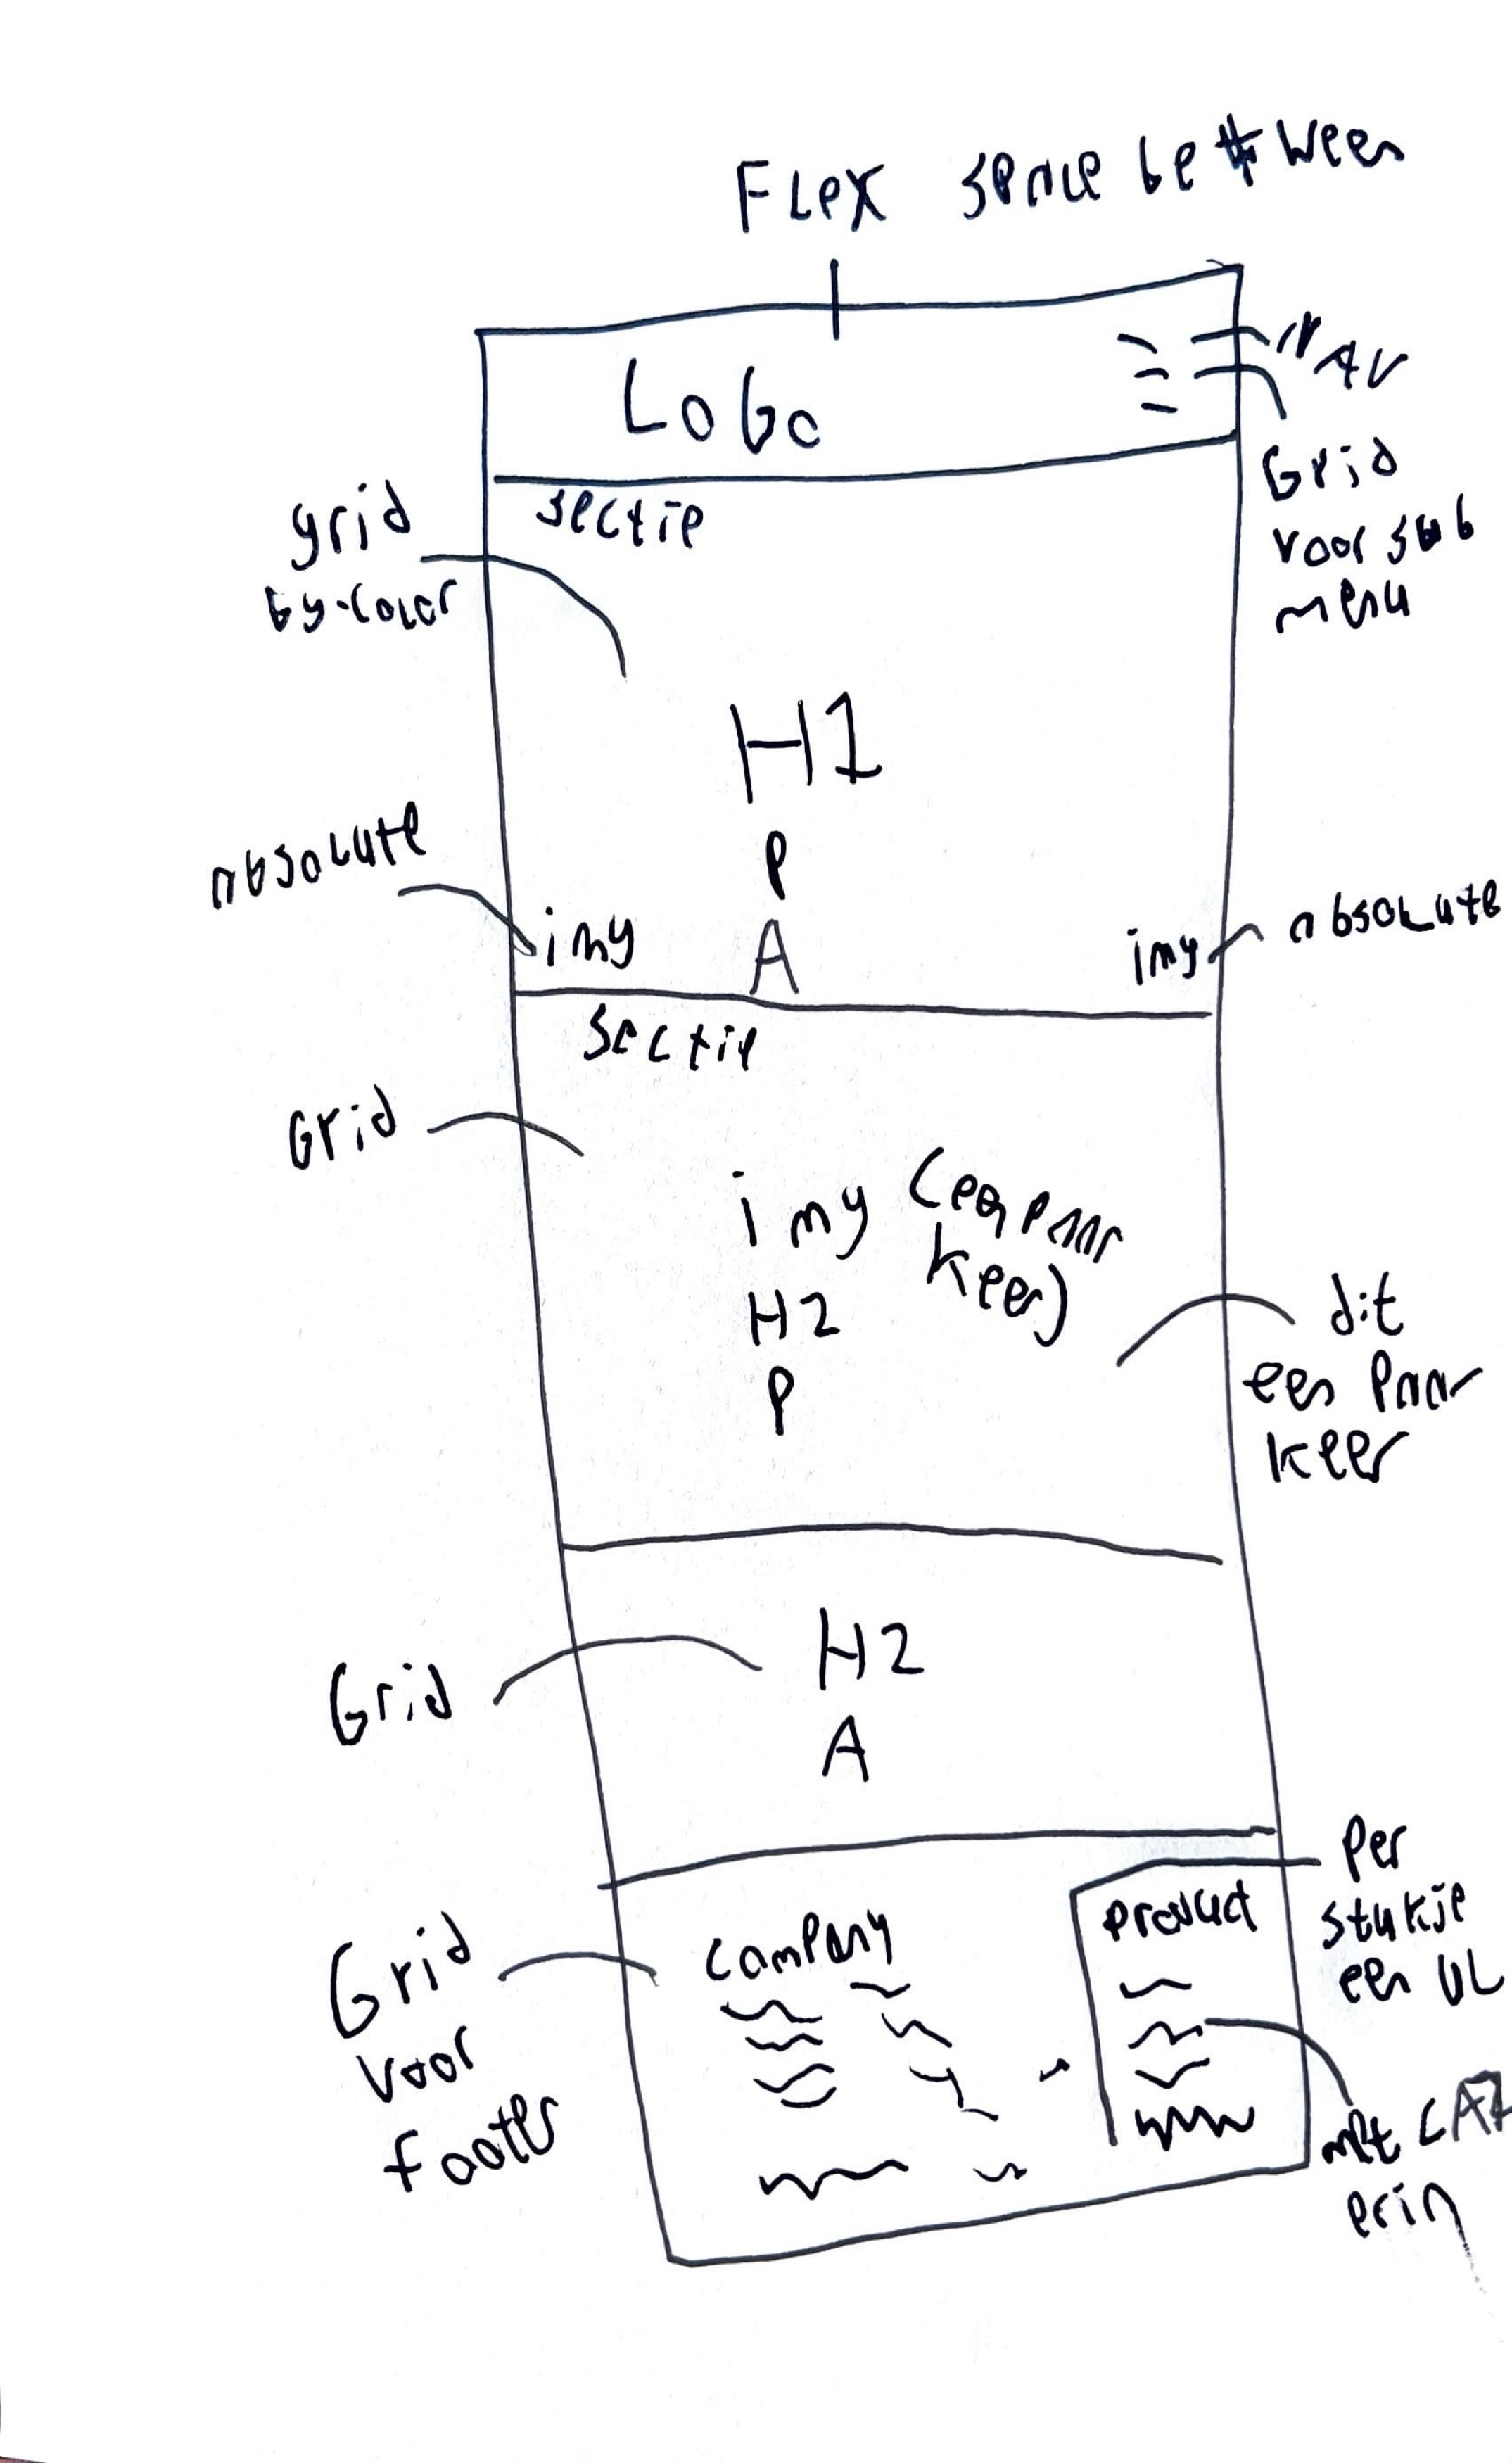 FLex space between
Logo
NAV
Grid
voor sub
menu
sectie
grid
bg-color
H1
P
A
absolute
img
img
absolute
sectie
Grid
img (een paar
keer)
H2
P
dit
een paar
keer
Grid
H2
A
Grid
voor
footer
company
product
Per
stukje
een UL
met
erin